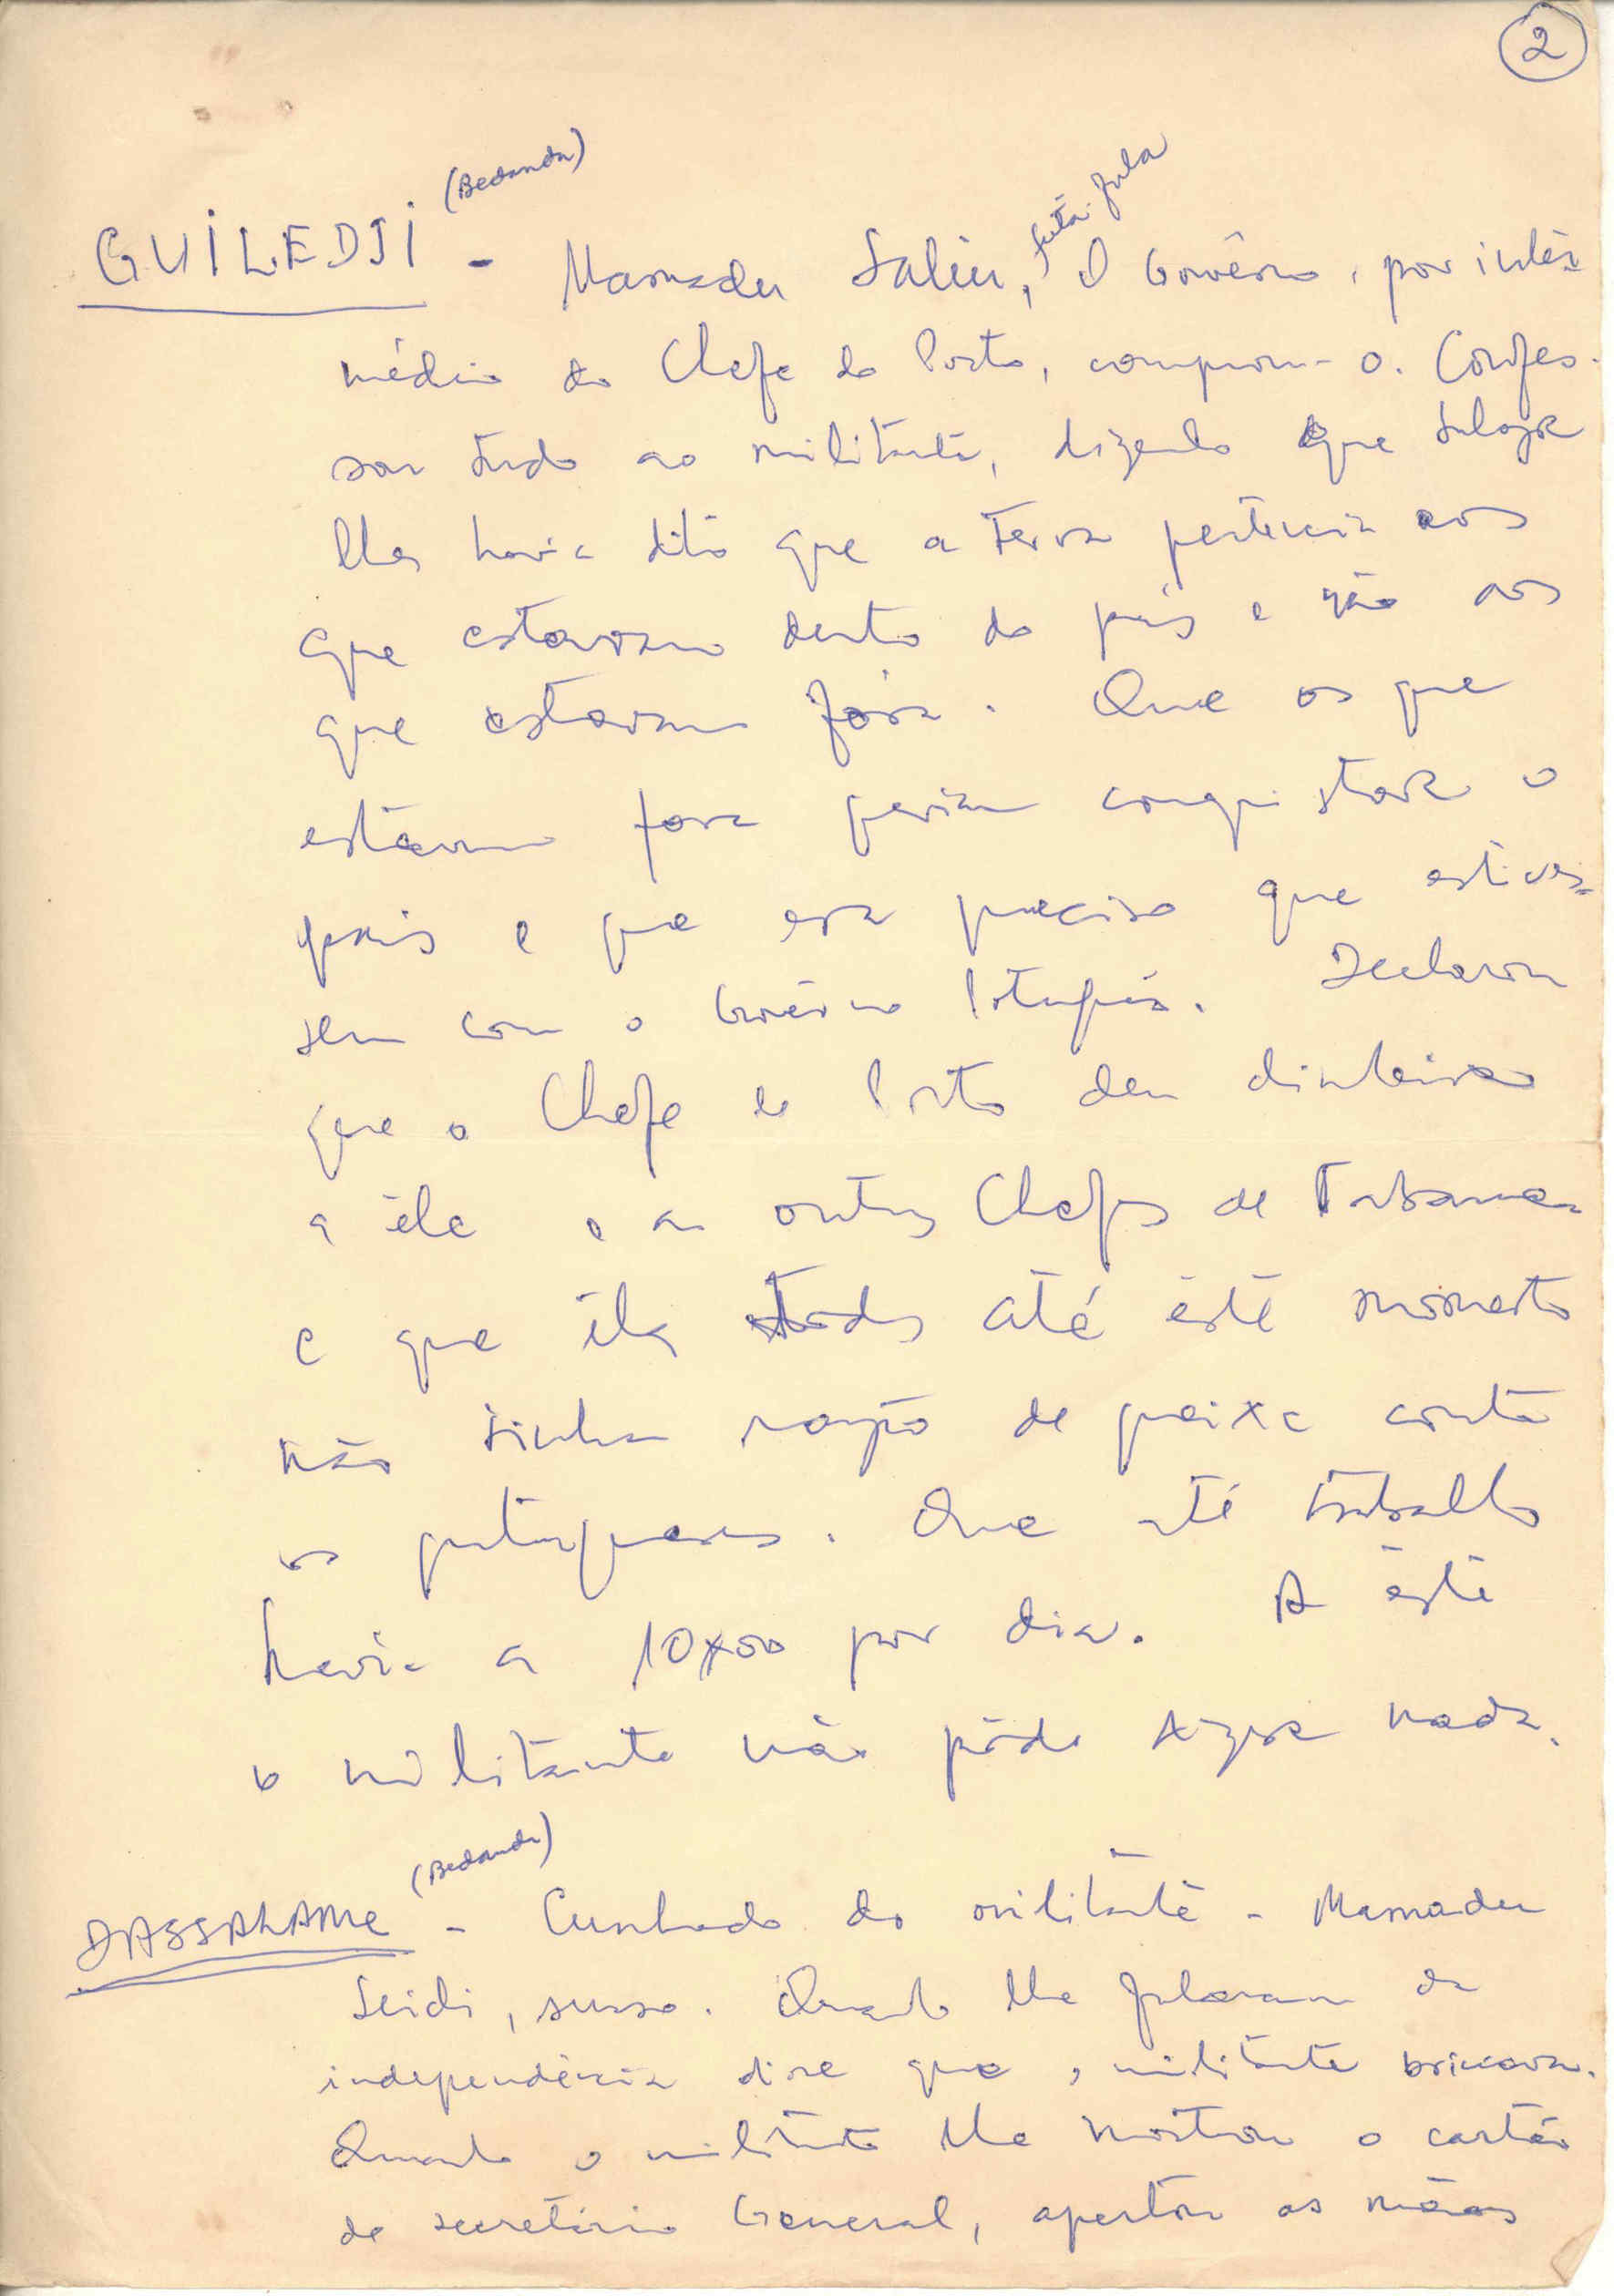 2
(Bedanda)
GUILEDJI - Mamadu Saliu, futa-fula O Govêrno, por inter-
médio do Chefe do Posto, comprou-o. Confes-
sou tudo ao militante, dizendo que
lhes havia dito que a terra pertencia aos
que estavam dentro do país e não aos
que estavam fóra. Que os que
estavam fora queriam conquistar o
país e que era preciso que estives-
sem com o Govêrno Português. Declarou
que o Chefe do Posto deu dinheiro
a êle e a outros Chefes de Tabanca
e que êles todos até êste momento
não tinham razão de queixa contra
os portugueses. Que até trabalho
havia a 10$00 por dia. A êste
o militante não pôde dizer nada.
(Bedanda)
DASSALAME - Cunhado do militante - Mamadu
Seidi, susso. Quando lhe falaram da
independência disse que o militante brincava.
Quando o militante lhe mostrou o cartão
de secretário General, apertou as mãos